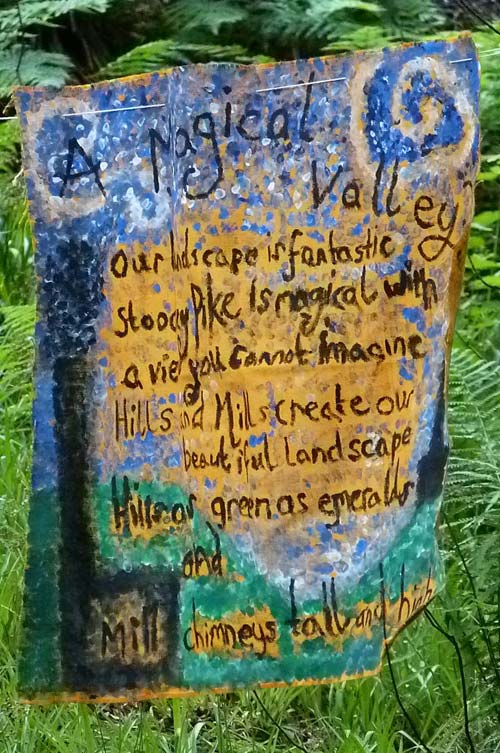 A Magical
Valley
Our landscape is fantastic
Stoody Pike Is magical with
a view you cannot Imagine
Hills and Mills create our
beautiful Landscape
Hills as green as emeralds
and
Mill chimneys tall and high